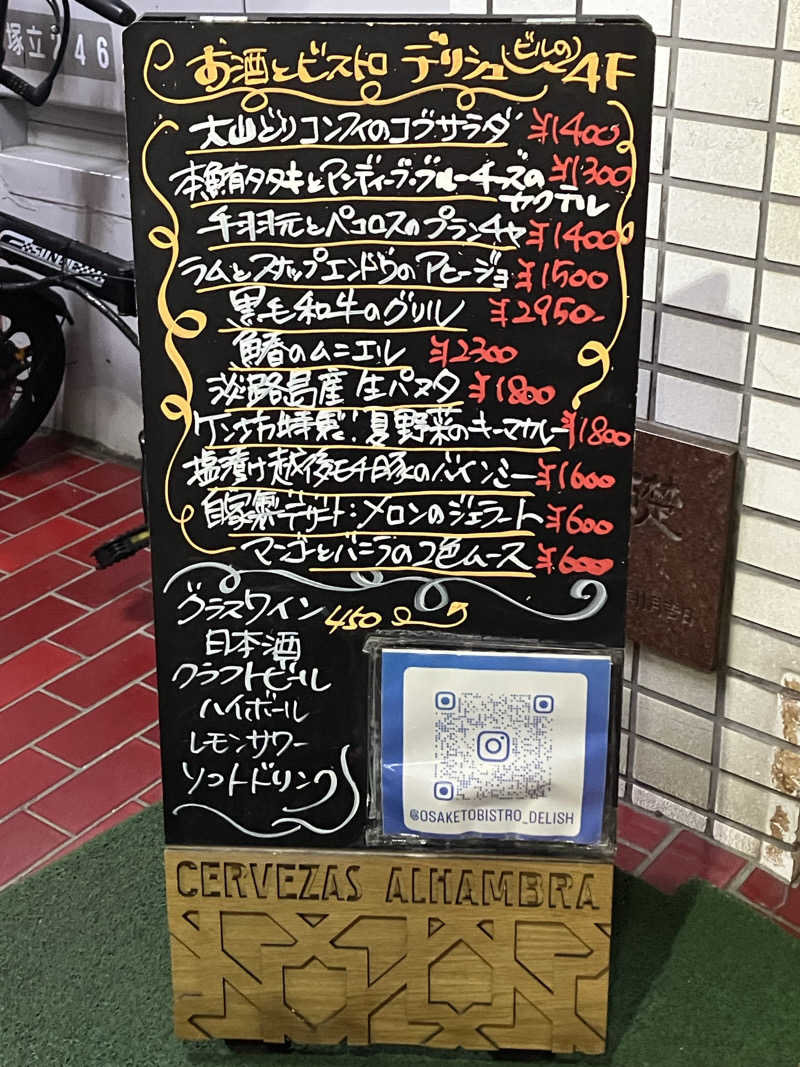 塚立ジ46
お酒とビストロ デリシュ(ビルの)4F
大山どりコンフィのコブサラダ ¥1400
本鮪タタキとアンディーブ・ブルーチーズの ¥1300
カクテル
千羽元とペコロスのプランチャ ¥1400
ラムとスナップエンドウのアヒージョ ¥1500
黒毛和牛のグリル ¥2950-
鰆のムニエル ¥2300
淡路島産 生パスタ ¥1800
ケンサカ特製!夏野菜のキーマカレー ¥1800
塩漬け越後もち豚のバインミー ¥1600
自家製デザート:メロンのジェラート ¥600
マンゴとバニラの2色ムース ¥600
グラスワイン 450
日本酒
クラフトビール
ハイボール
レモンサワー
ソフトドリンク
@OSAKETOBISTRO_DELISH
CERVEZAS ALHAMBRA